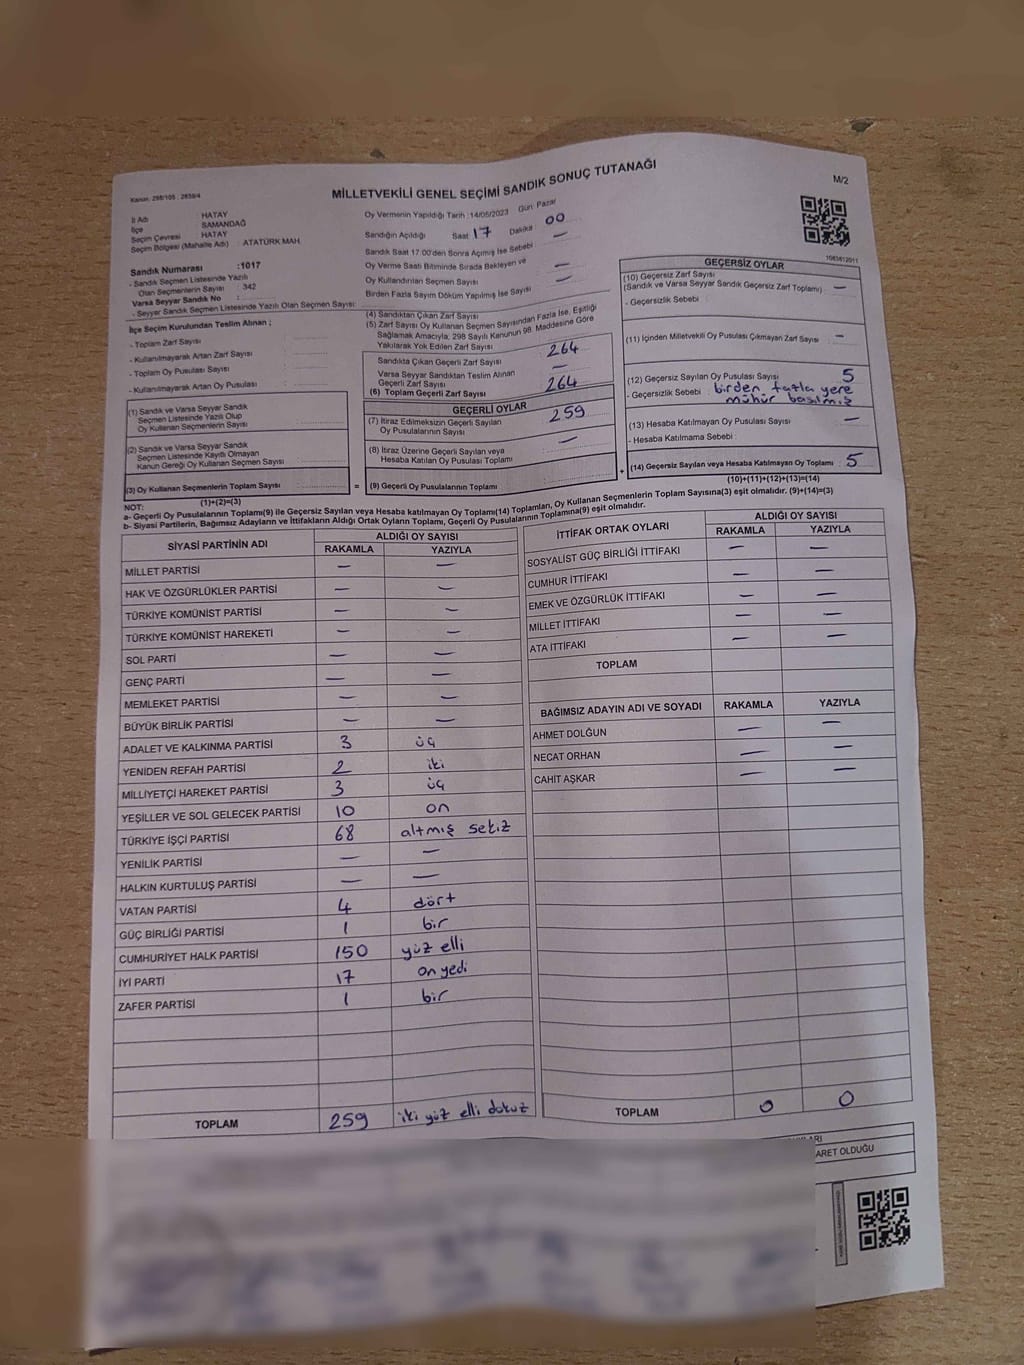 Kanun: 298/105 : 2839/4
MİLLETVEKİLİ GENEL SEÇİMİ SANDIK SONUÇ TUTANAĞI
M/2
İl Adı HATAY
İlçe SAMANDAĞ
Seçim Çevresi HATAY
Seçim Bölgesi (Mahalle Adı) : ATATÜRK MAH.
Sandık Numarası :1017
- Sandık Seçmen Listesinde Yazılı
Olan Seçmenlerin Sayısı 342
Varsa Seyyar Sandık No :
- Seyyar Sandık Seçmen Listesinde Yazılı Olan Seçmen Sayısı:
Oy Vermenin Yapıldığı Tarih :14/05/2023 Gün Pazar
Sandığın Açıldığı Saat 17 Dakika 00
Sandık Saat 17:00'den Sonra Açılmış İse Sebebi —
Oy Verme Saati Bitiminde Sırada Bekleyen ve
Oy Kullandırılan Seçmen Sayısı —
Birden Fazla Sayım Döküm Yapılmış İse Sayısı —
İlçe Seçim Kurulundan Teslim Alınan ;
- Toplam Zarf Sayısı :
- Kullanılmayarak Artan Zarf Sayısı :
- Toplam Oy Pusulası Sayısı :
- Kullanılmayarak Artan Oy Pusulası :
(1) Sandık ve Varsa Seyyar Sandık
Seçmen Listesinde Yazılı Olup
Oy Kullanan Seçmenlerin Sayısı
(2) Sandık ve Varsa Seyyar Sandık
Seçmen Listesinde Kayıtlı Olmayan
Kanun Gereği Oy Kullanan Seçmen Sayısı
(3) Oy Kullanan Seçmenlerin Toplam Sayısı
(1)+(2)=(3)
(4) Sandıktan Çıkan Zarf Sayısı
(5) Zarf Sayısı Oy Kullanan Seçmen Sayısından Fazla İse, Eşitliği
Sağlamak Amacıyla; 298 Sayılı Kanunun 98. Maddesine Göre
Yakılarak Yok Edilen Zarf Sayısı
Sandıkta Çıkan Geçerli Zarf Sayısı 264
Varsa Seyyar Sandıktan Teslim Alınan
Geçerli Zarf Sayısı —
(6) Toplam Geçerli Zarf Sayısı 264
GEÇERLİ OYLAR
(7) İtiraz Edilmeksizin Geçerli Sayılan
Oy Pusulalarının Sayısı 259
(8) İtiraz Üzerine Geçerli Sayılan veya
Hesaba Katılan Oy Pusulası Toplamı —
= (9) Geçerli Oy Pusulalarının Toplamı +
GEÇERSİZ OYLAR
(10) Geçersiz Zarf Sayısı
(Sandık ve Varsa Seyyar Sandık Geçersiz Zarf Toplamı) —
- Geçersizlik Sebebi :
(11) İçinden Milletvekili Oy Pusulası Çıkmayan Zarf Sayısı —
(12) Geçersiz Sayılan Oy Pusulası Sayısı 5
- Geçersizlik Sebebi : birden fazla yere
mühür basılmış
(13) Hesaba Katılmayan Oy Pusulası Sayısı —
- Hesaba Katılmama Sebebi :
(14) Geçersiz Sayılan veya Hesaba Katılmayan Oy Toplamı : 5
(10)+(11)+(12)+(13)=(14)
NOT:
a- Geçerli Oy Pusulalarının Toplamı(9) ile Geçersiz Sayılan veya Hesaba katılmayan Oy Toplamı(14) Toplamları, Oy Kullanan Seçmenlerin Toplam Sayısına(3) eşit olmalıdır. (9)+(14)=(3)
b- Siyasi Partilerin, Bağımsız Adayların ve İttifakların Aldığı Ortak Oyların Toplamı, Geçerli Oy Pusulalarının Toplamına(9) eşit olmalıdır.
SİYASİ PARTİNİN ADI ALDIĞI OY SAYISI
RAKAMLA YAZIYLA
MİLLET PARTİSİ — —
HAK VE ÖZGÜRLÜKLER PARTİSİ — —
TÜRKİYE KOMÜNİST PARTİSİ — —
TÜRKİYE KOMÜNİST HAREKETİ — —
SOL PARTİ — —
GENÇ PARTİ — —
MEMLEKET PARTİSİ — —
BÜYÜK BİRLİK PARTİSİ — —
ADALET VE KALKINMA PARTİSİ 3 üç
YENİDEN REFAH PARTİSİ 2 iki
MİLLİYETÇİ HAREKET PARTİSİ 3 üç
YEŞİLLER VE SOL GELECEK PARTİSİ 10 on
TÜRKİYE İŞÇİ PARTİSİ 68 altmış sekiz
YENİLİK PARTİSİ — —
HALKIN KURTULUŞ PARTİSİ — —
VATAN PARTİSİ 4 dört
GÜÇ BİRLİĞİ PARTİSİ 1 bir
CUMHURİYET HALK PARTİSİ 150 yüz elli
İYİ PARTİ 17 on yedi
ZAFER PARTİSİ 1 bir
TOPLAM 259 iki yüz elli dokuz
İTTİFAK ORTAK OYLARI ALDIĞI OY SAYISI
RAKAMLA YAZIYLA
SOSYALİST GÜÇ BİRLİĞİ İTTİFAKI — —
CUMHUR İTTİFAKI — —
EMEK VE ÖZGÜRLÜK İTTİFAKI — —
MİLLET İTTİFAKI — —
ATA İTTİFAKI — —
TOPLAM
BAĞIMSIZ ADAYIN ADI VE SOYADI RAKAMLA YAZIYLA
AHMET DOLĞUN — —
NECAT ORHAN — —
CAHİT AŞKAR — —
TOPLAM 0 0
ARET OLDUĞU